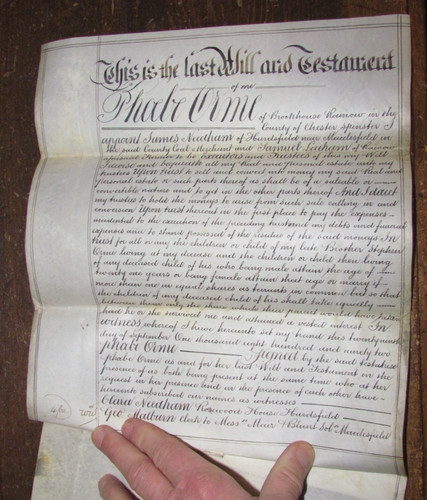 This is the last Will and Testament
of me
Phœbe Orme
of Brookhouse Rainow in the
County of Chester Spinster I
appoint James Needham of Hurdsfield near Macclesfield in
the said County Coal Merchant and Samuel Leah of Rainow
aforesaid Farmer to be Executors and Trustees of this my Will
I devise and bequeath all my Real and personal estate unto my
trustees Upon trust to sell and convert into money my said Real and
personal estate or such parts thereof as shall be of a saleable or
convertible nature and to get in the other parts thereof And I direct
my trustees to hold the moneys to arise from such sale calling in and
conversion Upon trust thereout in the first place to pay the expenses
incidental to the execution of the preceding trusts and my debts and funeral
expenses and to stand possessed of the residue of the said moneys In
trust for all or any the children or child of my late Brother Stephen
Orme living at my decease and the children or child then living
of any deceased child of his who being male attain the age of
twenty one years or being female attain that age or marry if
more than one in equal shares as tenants in common but so that
the children of any deceased child of his shall take equally
between them only the share which their parent would have taken
had he or she survived me and attained a vested interest In
witness whereof I have hereunto set my hand this twenty ninth
day of September One thousand eight hundred and ninety two
Phœbe Orme Signed by the said testatrix
Phœbe Orme as and for her last Will and Testament in the
presence of us both being present at the same time who at her
request in her presence and in the presence of each other have
hereunto subscribed our names as witnesses
Clara Needham Rosewood House Hurdsfield
Geo Malburn Clerk to Messrs Mair & Blunt Solrs Macclesfield